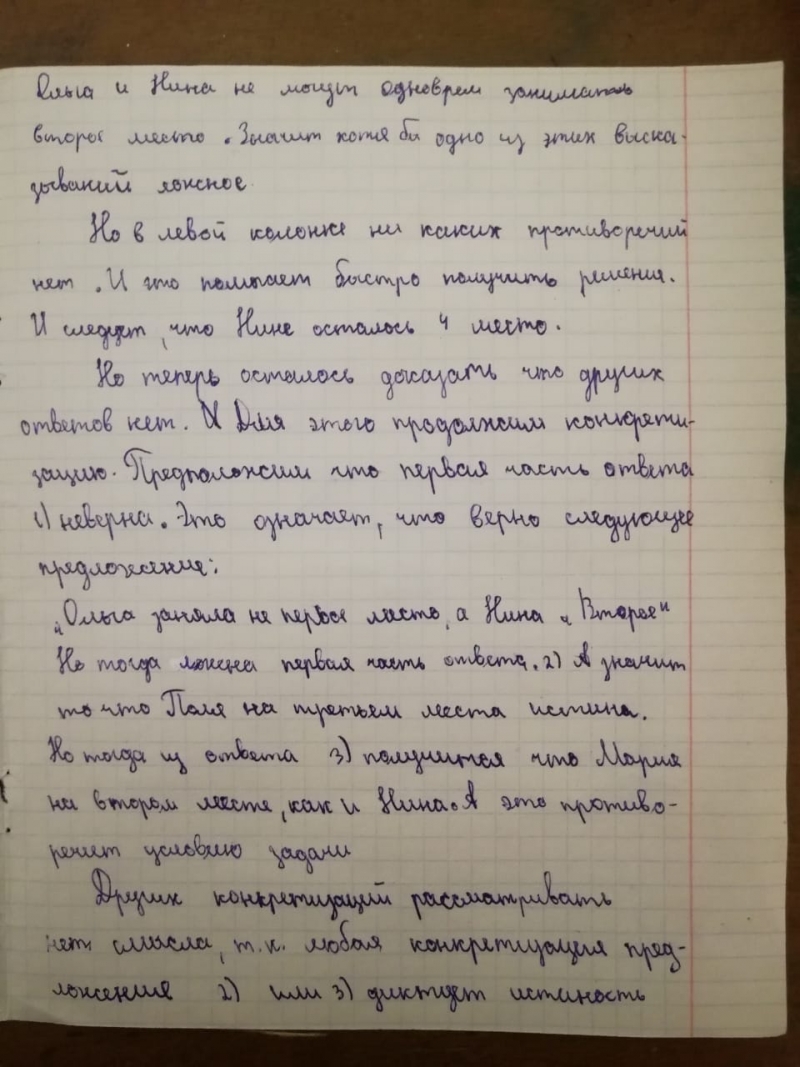 Ольга и Нина не могут одноврем занимать
второе место. Значит хотя бы одно из этих выска-
зываний ложное.
Но в левой колонке ни каких противоречий
нет. И это помогает быстро получить решения.
И следует, что Нине осталось 4 место.
Но теперь осталось доказать что других
ответов нет. Для этого продолжим конкрети-
зацию. Предположим что первая часть ответа
1) неверна. Это означает, что верно следующее
предложение:
"Ольга заняла не первое место, а Нина "Второе"
Но тогда ложна первая часть ответа. 2) А значит
то что Поля на третьем места истина.
Но тогда из ответа 3) получится что Мария
на втором месте, как и Нина. А это противо-
речит условию задачи
Других конкретизаций рассматривать
нет смысла, т.к. любая конкретизация пред-
ложения 2) или 3) диктует истиность